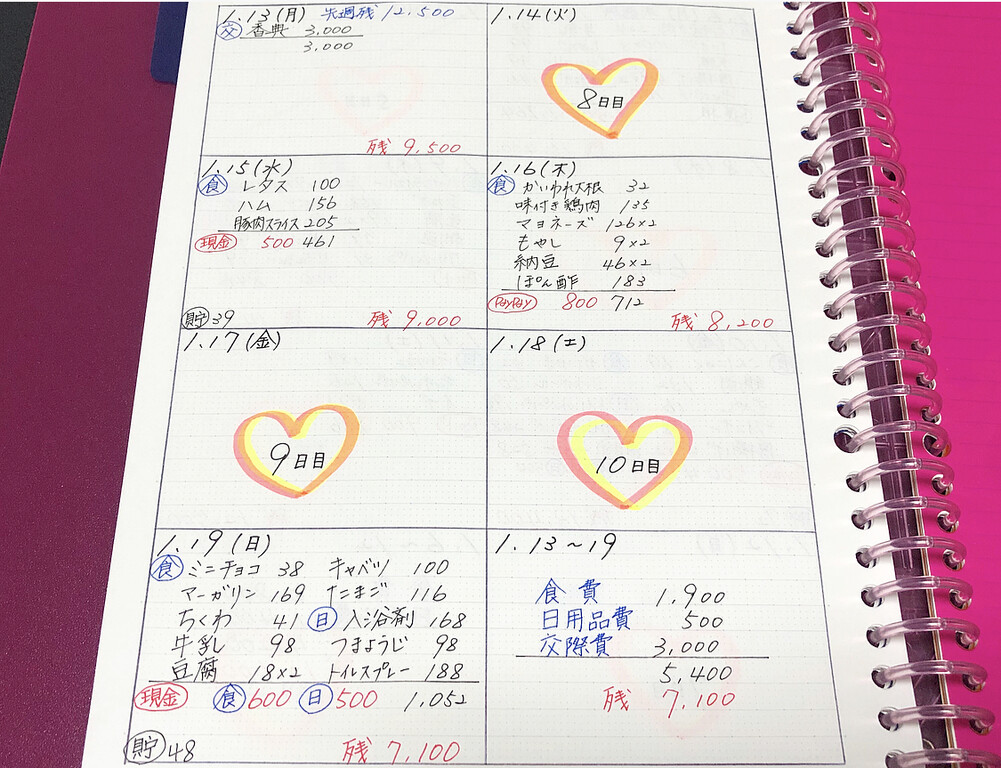 1.13(月) 先週残 12,500
交 香典 3,000
3,000
残 9,500
1.14(火)
8日目
1.15(水)
食 レタス 100
ハム 156
豚肉スライス 205
現金 500 461
貯 39
残 9,000
1.16(木)
食 かいわれ大根 32
味付き鶏肉 135
マヨネーズ 126×2
もやし 9×2
納豆 46×2
ぽん酢 183
PayPay 800 712
残 8,200
1.17(金)
9日目
1.18(土)
10日目
1.19(日)
食 ミニチョコ 38 キャベツ 100
マーガリン 169 たまご 116
ちくわ 41 日 入浴剤 168
牛乳 98 つまようじ 98
豆腐 18×2 トイレスプレー 188
現金 食 600 日 500 1,052
貯 48
残 7,100
1.13~19
食費 1,900
日用品費 500
交際費 3,000
5,400
残 7,100